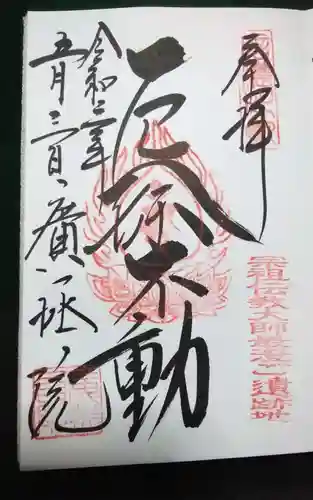 奉拝
宗祖伝教大師最澄ご遺跡地
厄除不動
令和三年
五月三日
廣拯院